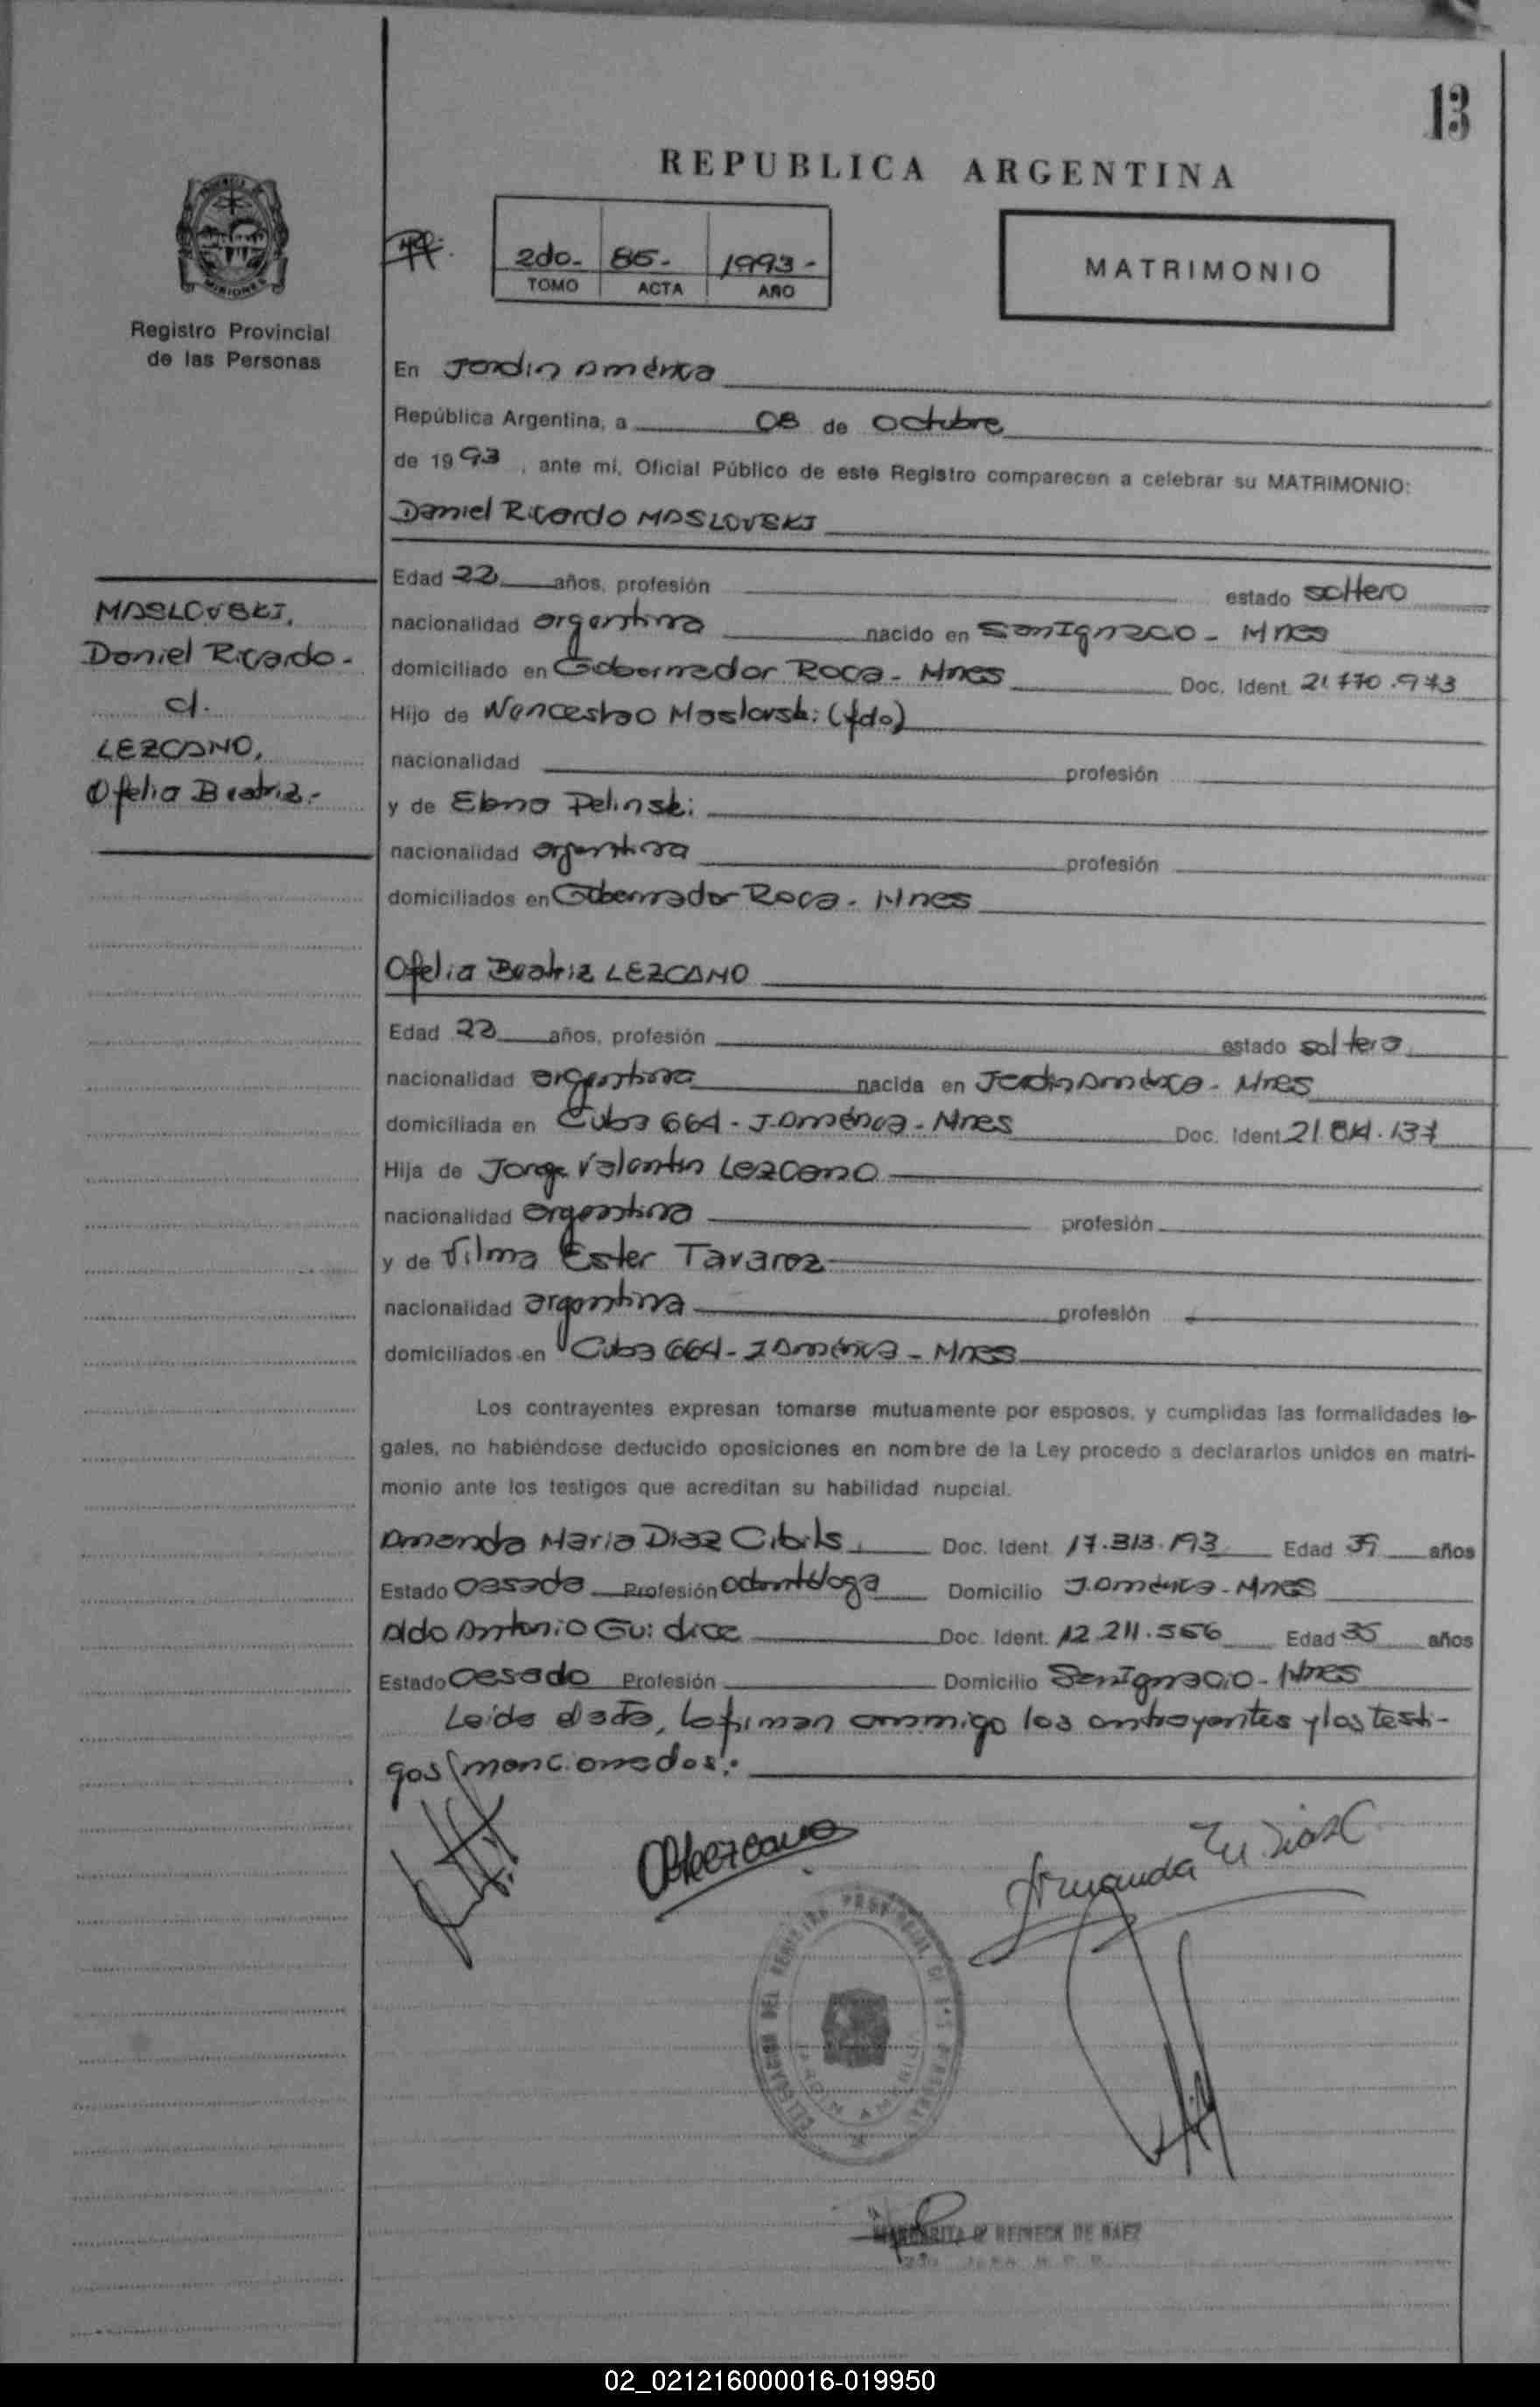 13
REPUBLICA ARGENTINA
PROVINCIA DE
MISIONES
2do- 85- 1993-
TOMO ACTA AÑO
MATRIMONIO
Registro Provincial
de las Personas
En Jardin América
República Argentina, a 08 de octubre
de 1993, ante mí, Oficial Público de este Registro comparecen a celebrar su MATRIMONIO:
Daniel Ricardo MASLOVSKI
Edad 22 años, profesión estado soltero
nacionalidad argentina nacido en San Ignacio - Mnes
domiciliado en Gobernador Roca - Mnes Doc. Ident.
Hijo de Wenceslao Maslovski (fdo)
nacionalidad profesión
y de Elena Pelinski
nacionalidad argentina profesión
domiciliados en Gobernador Roca - Mnes
MASLOVSKI,
Daniel Ricardo-
c/.
LEZCANO,
Ofelia Beatriz.-
Ofelia Beatriz LEZCANO
Edad 22 años, profesión estado soltera
nacionalidad argentina nacida en Jardin América - Mnes
domiciliada en Cuba 664 - J. América - Mnes Doc. Ident.
Hija de Jorge Valentin Lezcano
nacionalidad argentina profesión
y de Vilma Ester Tavarez
nacionalidad argentina profesión
domiciliados en Cuba 664 - J América - Mnes
Los contrayentes expresan tomarse mutuamente por esposos, y cumplidas las formalidades le-
gales, no habiéndose deducido oposiciones en nombre de la Ley procedo a declararlos unidos en matri-
monio ante los testigos que acreditan su habilidad nupcial.
Amanda Maria Diaz Cibils Doc. Ident. 17.313.193 Edad 39 años
Estado casada Profesión odontóloga Domicilio J. América - Mnes
Aldo Antonio Guidice Doc. Ident. 12.211.556 Edad 35 años
Estado casado Profesión Domicilio San Ignacio - Mnes
Leida el acta, la firman conmigo los contrayentes y los testi-
gos mencionados.-
OBLezcano
Amanda M. Diaz C
DEL REGISTRO PROVINCIAL DE LAS PERSONAS
JARDIN AMERICA
MARGARITA REINECK DE BAEZ
02_021216000016-019950